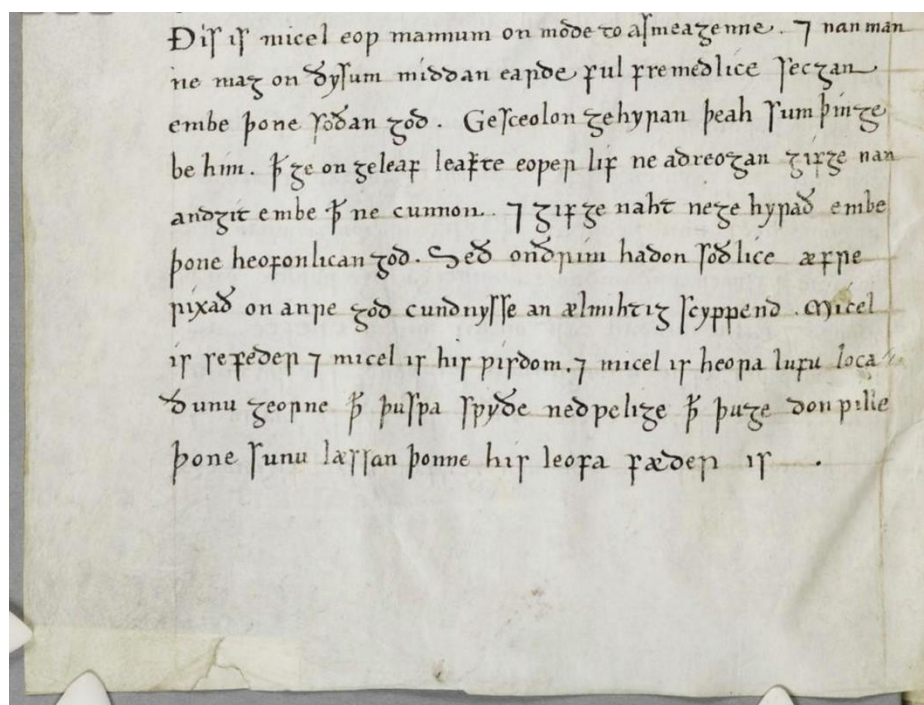 Ðis is micel eoƿ mannum on mode to asmeagenne. ⁊ nan man
ne mag on ðysum middan earde ful fremedlice secgan
embe þone soðan god. Gesceolon gehyran þeah sum þinge
be him. ꝥ ge on geleaf leafte eoƿer lif ne adreogan gifge nan
andgit embe ꝥ ne cunnon. ⁊ gifge naht nege hyrað embe
þone heofonlican god. Seð onðrim hadon soðlice æfre
rixað on anre god cundnysse an ælmihtig scyppend. Micel
is sefeder ⁊ micel is his ƿisdom. ⁊ micel is heora lufu loca
ðunu georne ꝥ þusƿa sƿyðe nedƿelige ꝥ þuge don ƿille
þone sunu læssan þonne his leofa fæder is .